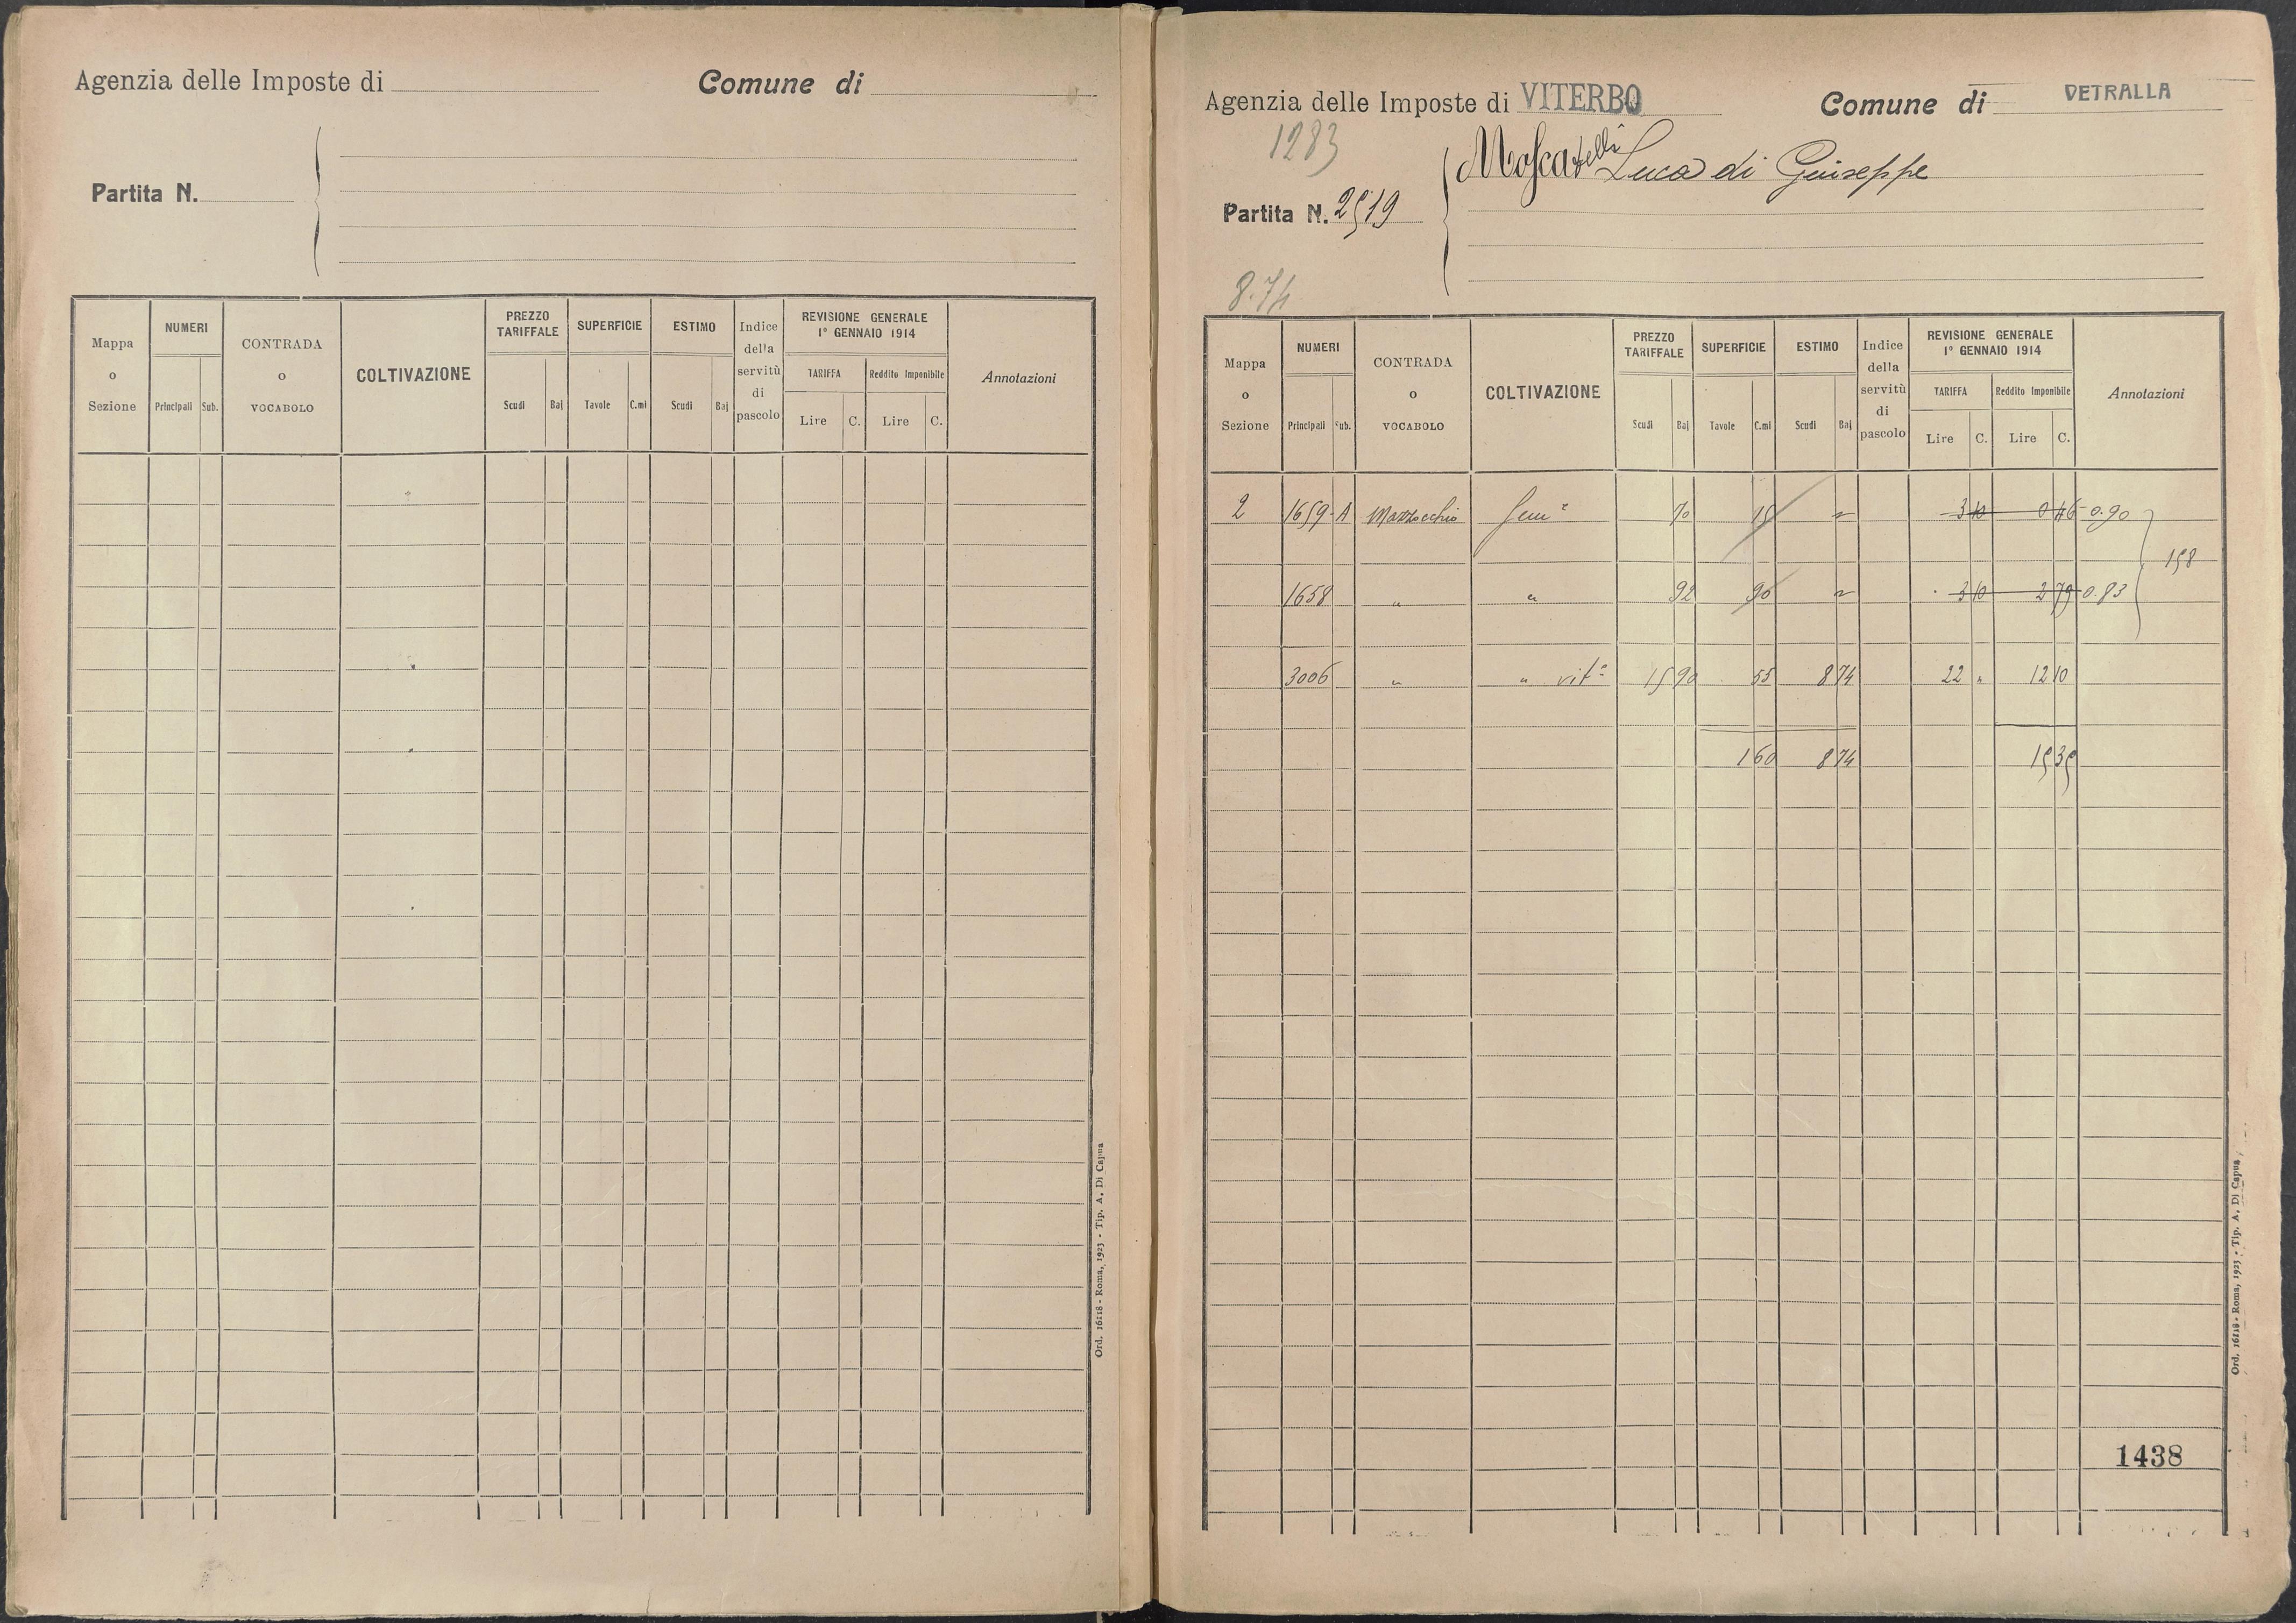 Agenzia delle Imposte di
Comune di
Partita N.
Mappa o Sezione
NUMERI
Principali Sub.
CONTRADA o VOCABOLO
COLTIVAZIONE
PREZZO TARIFFALE
Scudi Baj
SUPERFICIE
Tavole C.mi
ESTIMO
Scudi Baj
Indice della servitù di pascolo
REVISIONE GENERALE 1º GENNAIO 1914
TARIFFA
Lire C.
Reddito Imponibile
Lire C.
Annotazioni
Ord. 16118 - Roma, 1923 - Tip. A, Di Capua
Agenzia delle Imposte di VITERBO
Comune di VETRALLA
1283
Moscatelli Luca di Giuseppe
Partita N. 2519
8.74
Mappa o Sezione
NUMERI
Principali Sub.
CONTRADA o VOCABOLO
COLTIVAZIONE
PREZZO TARIFFALE
Scudi Baj
SUPERFICIE
Tavole C.mi
ESTIMO
Scudi Baj
Indice della servitù di pascolo
REVISIONE GENERALE 1º GENNAIO 1914
TARIFFA
Lire C.
Reddito Imponibile
Lire C.
Annotazioni
2 1659 A Mazzocchio Semº 70 15 3 10 0 46 0.90
158
1658 " " 92 90 3 10 2 79 0.83
3006 " " vitº 15 90 55 8 74 22 " 12 10
1 60 8 74 15 35
1438
Ord. 16118 - Roma, 1923 - Tip. A, Di Capua